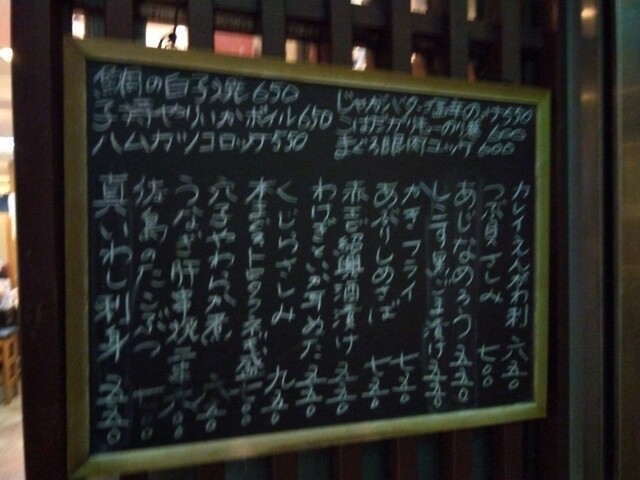 鯛の白子焼 650
子持やりいかボイル 650
ハムカツコロッケ 550
じゃがバター 塩辛のっけ 550
こはだガリもーのり巻 600
まぐろ眼肉コロッケ 600
カレイえんがわ刺 六五〇
つぶ貝さしみ 七〇〇
あじなめろう 五五〇
しこ 黒ごま漬け 五五〇
かきフライ 七五〇
あぶりしめさば 七五〇
赤 紹興酒漬け 五五〇
わけぎ ぬた 五五〇
くじらさしみ 九五〇
本まぐろトロ ねぎ 七〇〇
穴子やわらか煮 六五〇
うなぎ肝串焼 二本 六〇〇
佐島のたこぶつ 七〇〇
真いわし刺身 五五〇